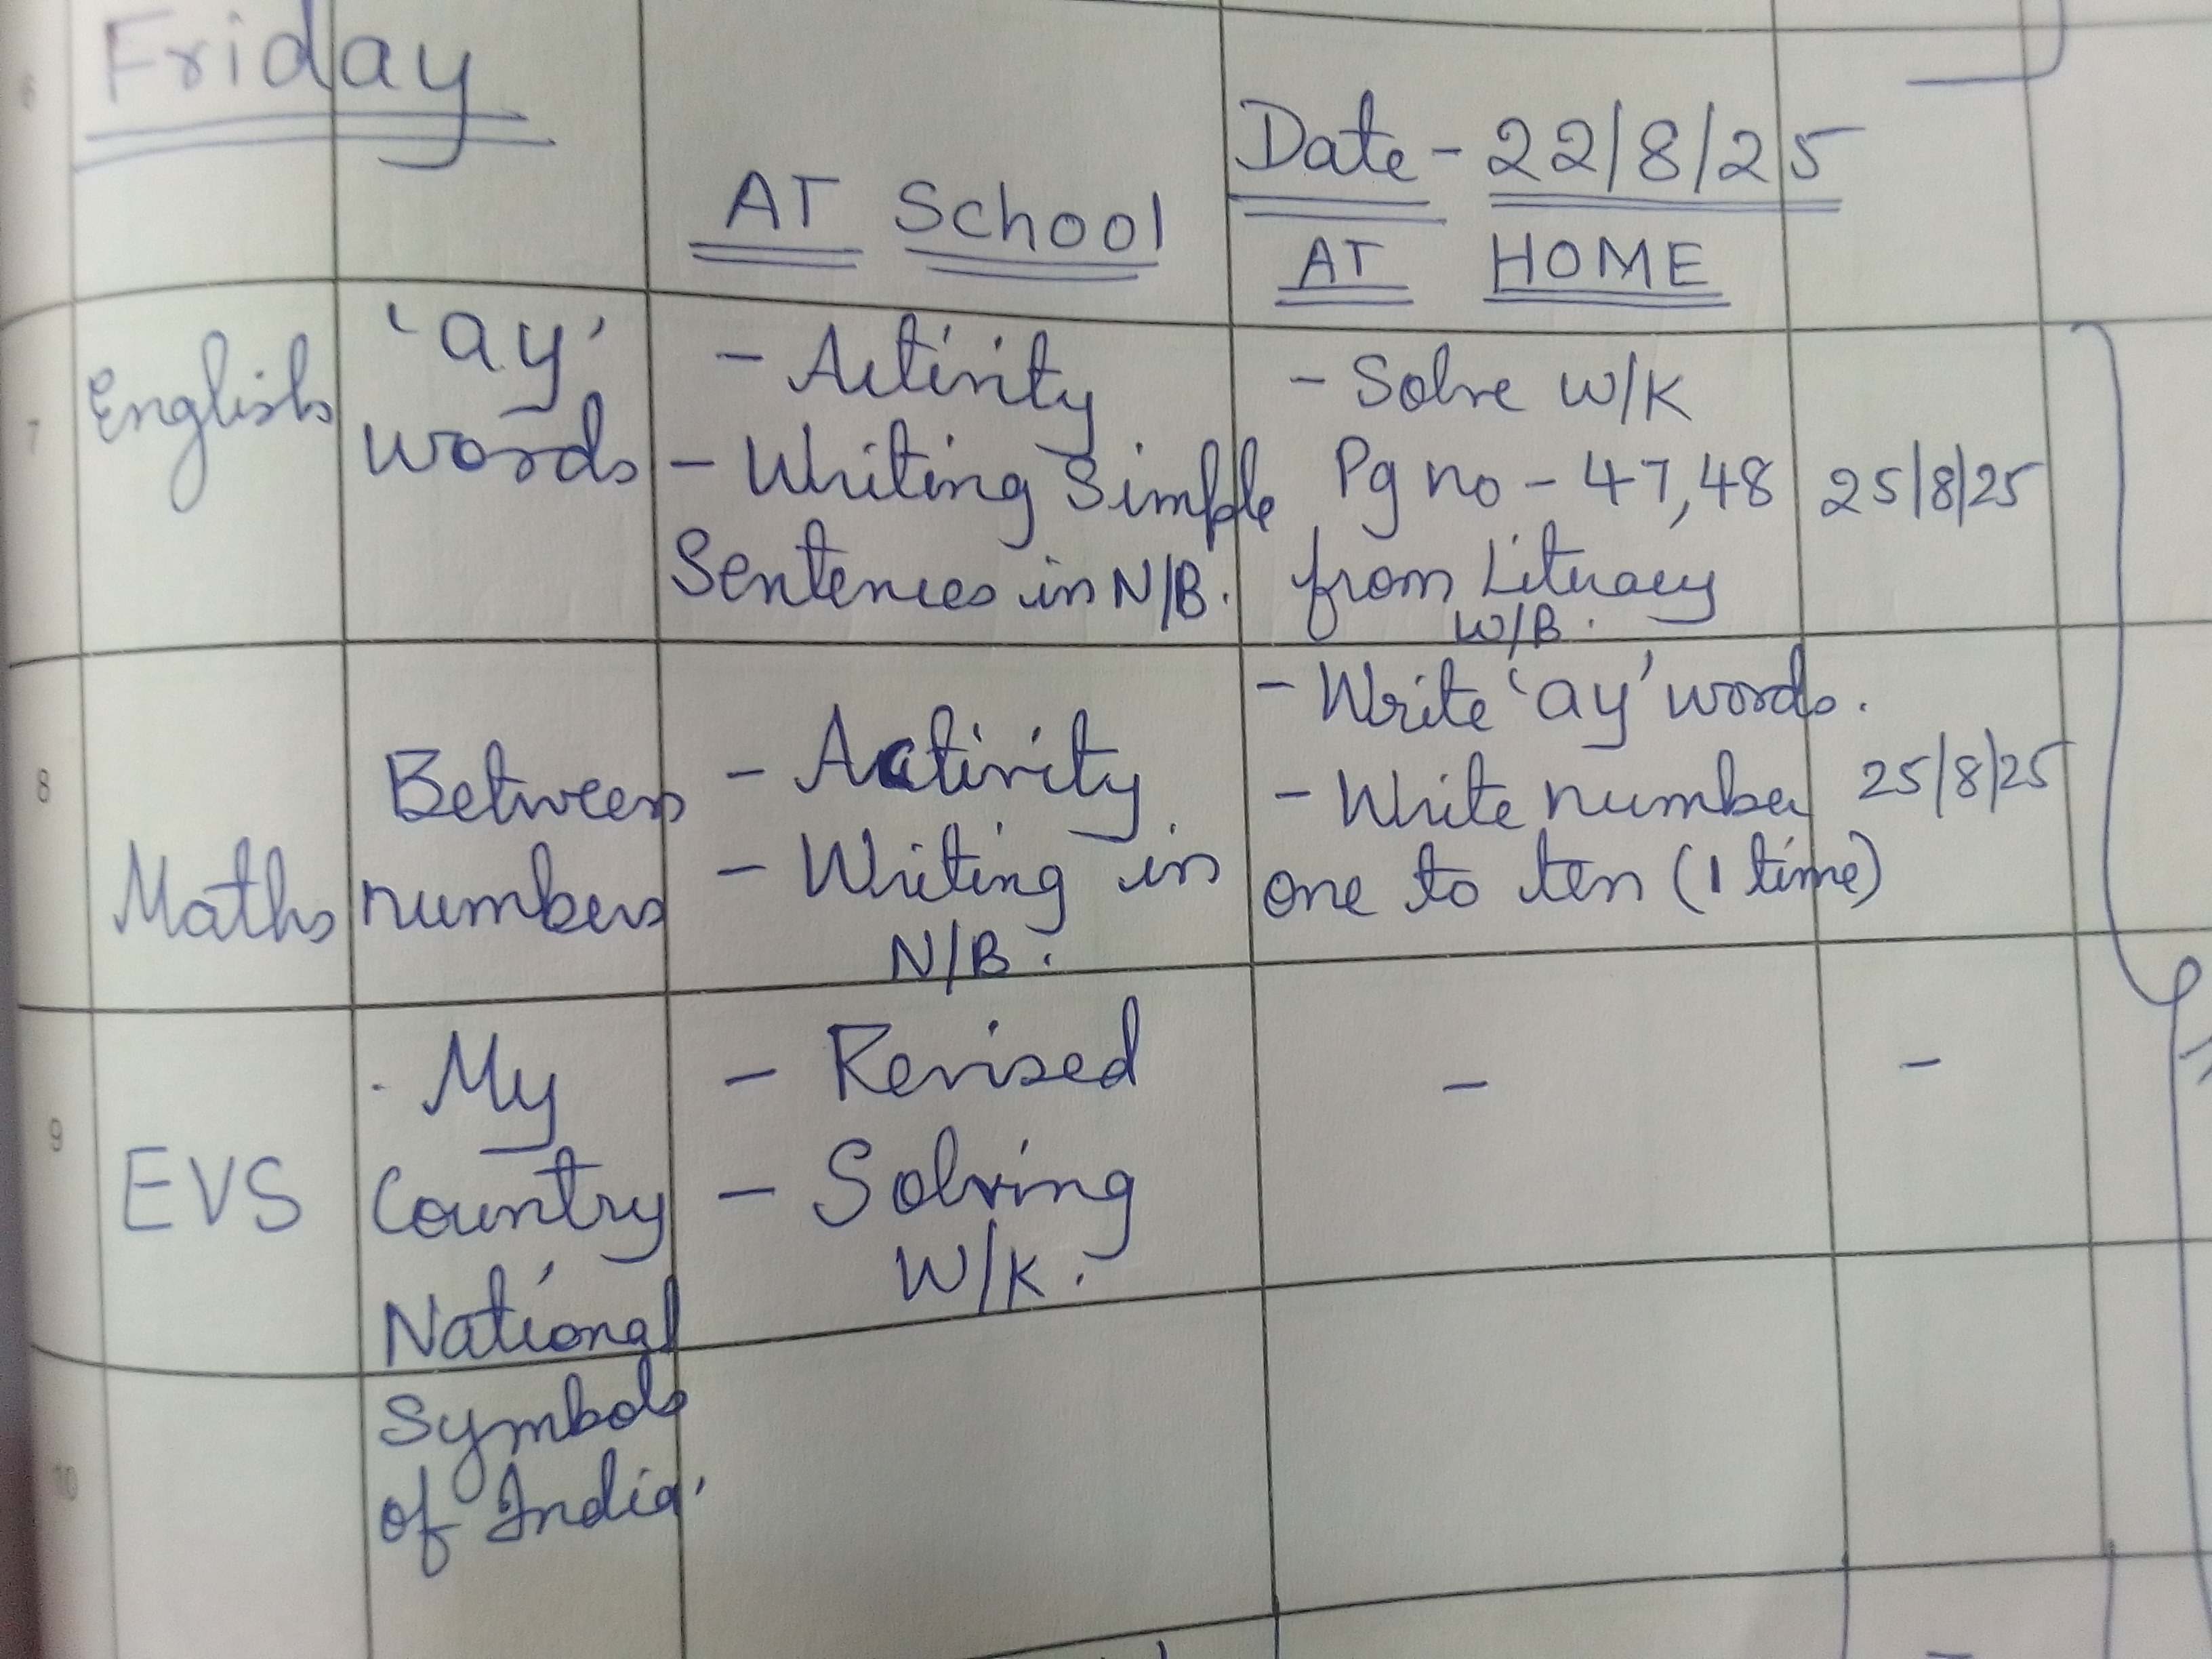 6
Friday
Date - 22/8/25
AT School
AT HOME
7
English
'ay'
words
- Activity
- Writing Simple
Sentences in N/B.
- Solve W/K
Pg no - 47,48
from Literacy
W/B.
25/8/25
8
Maths
Between
numbers
- Activity
- Writing in
N/B.
- Write 'ay' words.
- Write number
one to ten (1 time)
25/8/25
9
EVS
My
Country
National
Symbols
of India.
- Revised
- Solving
W/K.
-
-
10